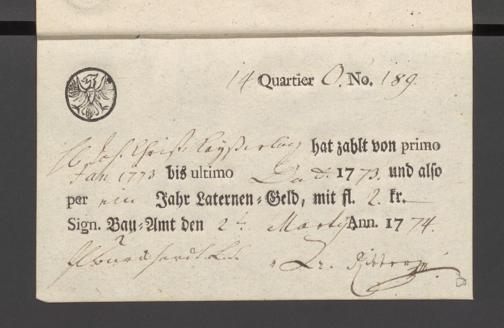 14 Quartier O. No. 189.
Joh. Christ. Kayßer hat zahlt von primo
Jan 1773 bis ultimo Dec. 1773. und also
per ein Jahr Laternen-Geld, mit fl. 2. kr.
Sign. Bau-Amt den 2t. Marty Ann. 1774.